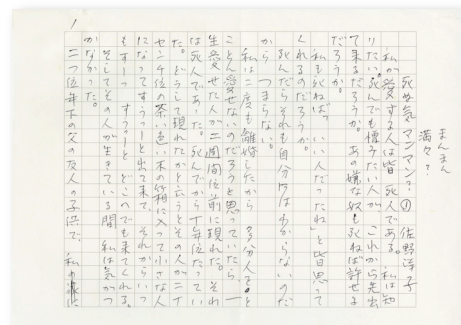 まんまん
満々?
死ぬ気マンマン? ① 佐野洋子
私が愛する人は皆 死人である。私は知
りたい。死んでも憎みたい人が これから先出
て来るだろうか。あの嫌な奴も死ねば許せる
だろうか。
私も死ねば「いい人だったね」と皆思って
くれるのだろうか。
死んだらそれも自分ではわからないのだ
から つまらない。
私は二度も離婚したから 多分人をと
ことん愛せないのだろうと思っていたら、一
生愛せた人が二週間位前に現れた。それ
は死人であった。死んでから十年位たってい
た。どうして現れたかと言うとその人が二十
センチ位の茶色い木の箱に入って小さな人
になってすうっーと出て来て、それからいつ
もすーっ すっーと どこへでも来てくれる。
そしてその人が生きている間 私は気がつ
かなかった。
二つ位年下の父の友人の子供で、私が
1